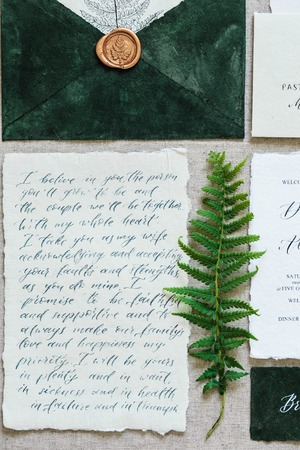 I believe in you, the person
you'll grow to be and
the couple we'll be together
With my whole heart
I take you as my wife
acknowledging and accepting
your faults and strengths
as you do mine. I
promise to be faithful
and supportive and to
always make our family
love and happiness my
priority. I will be yours
in plenty and in want,
in sickness and in health
in failure and in triumph
PAST
WELCO
SATU
DINNER
Br